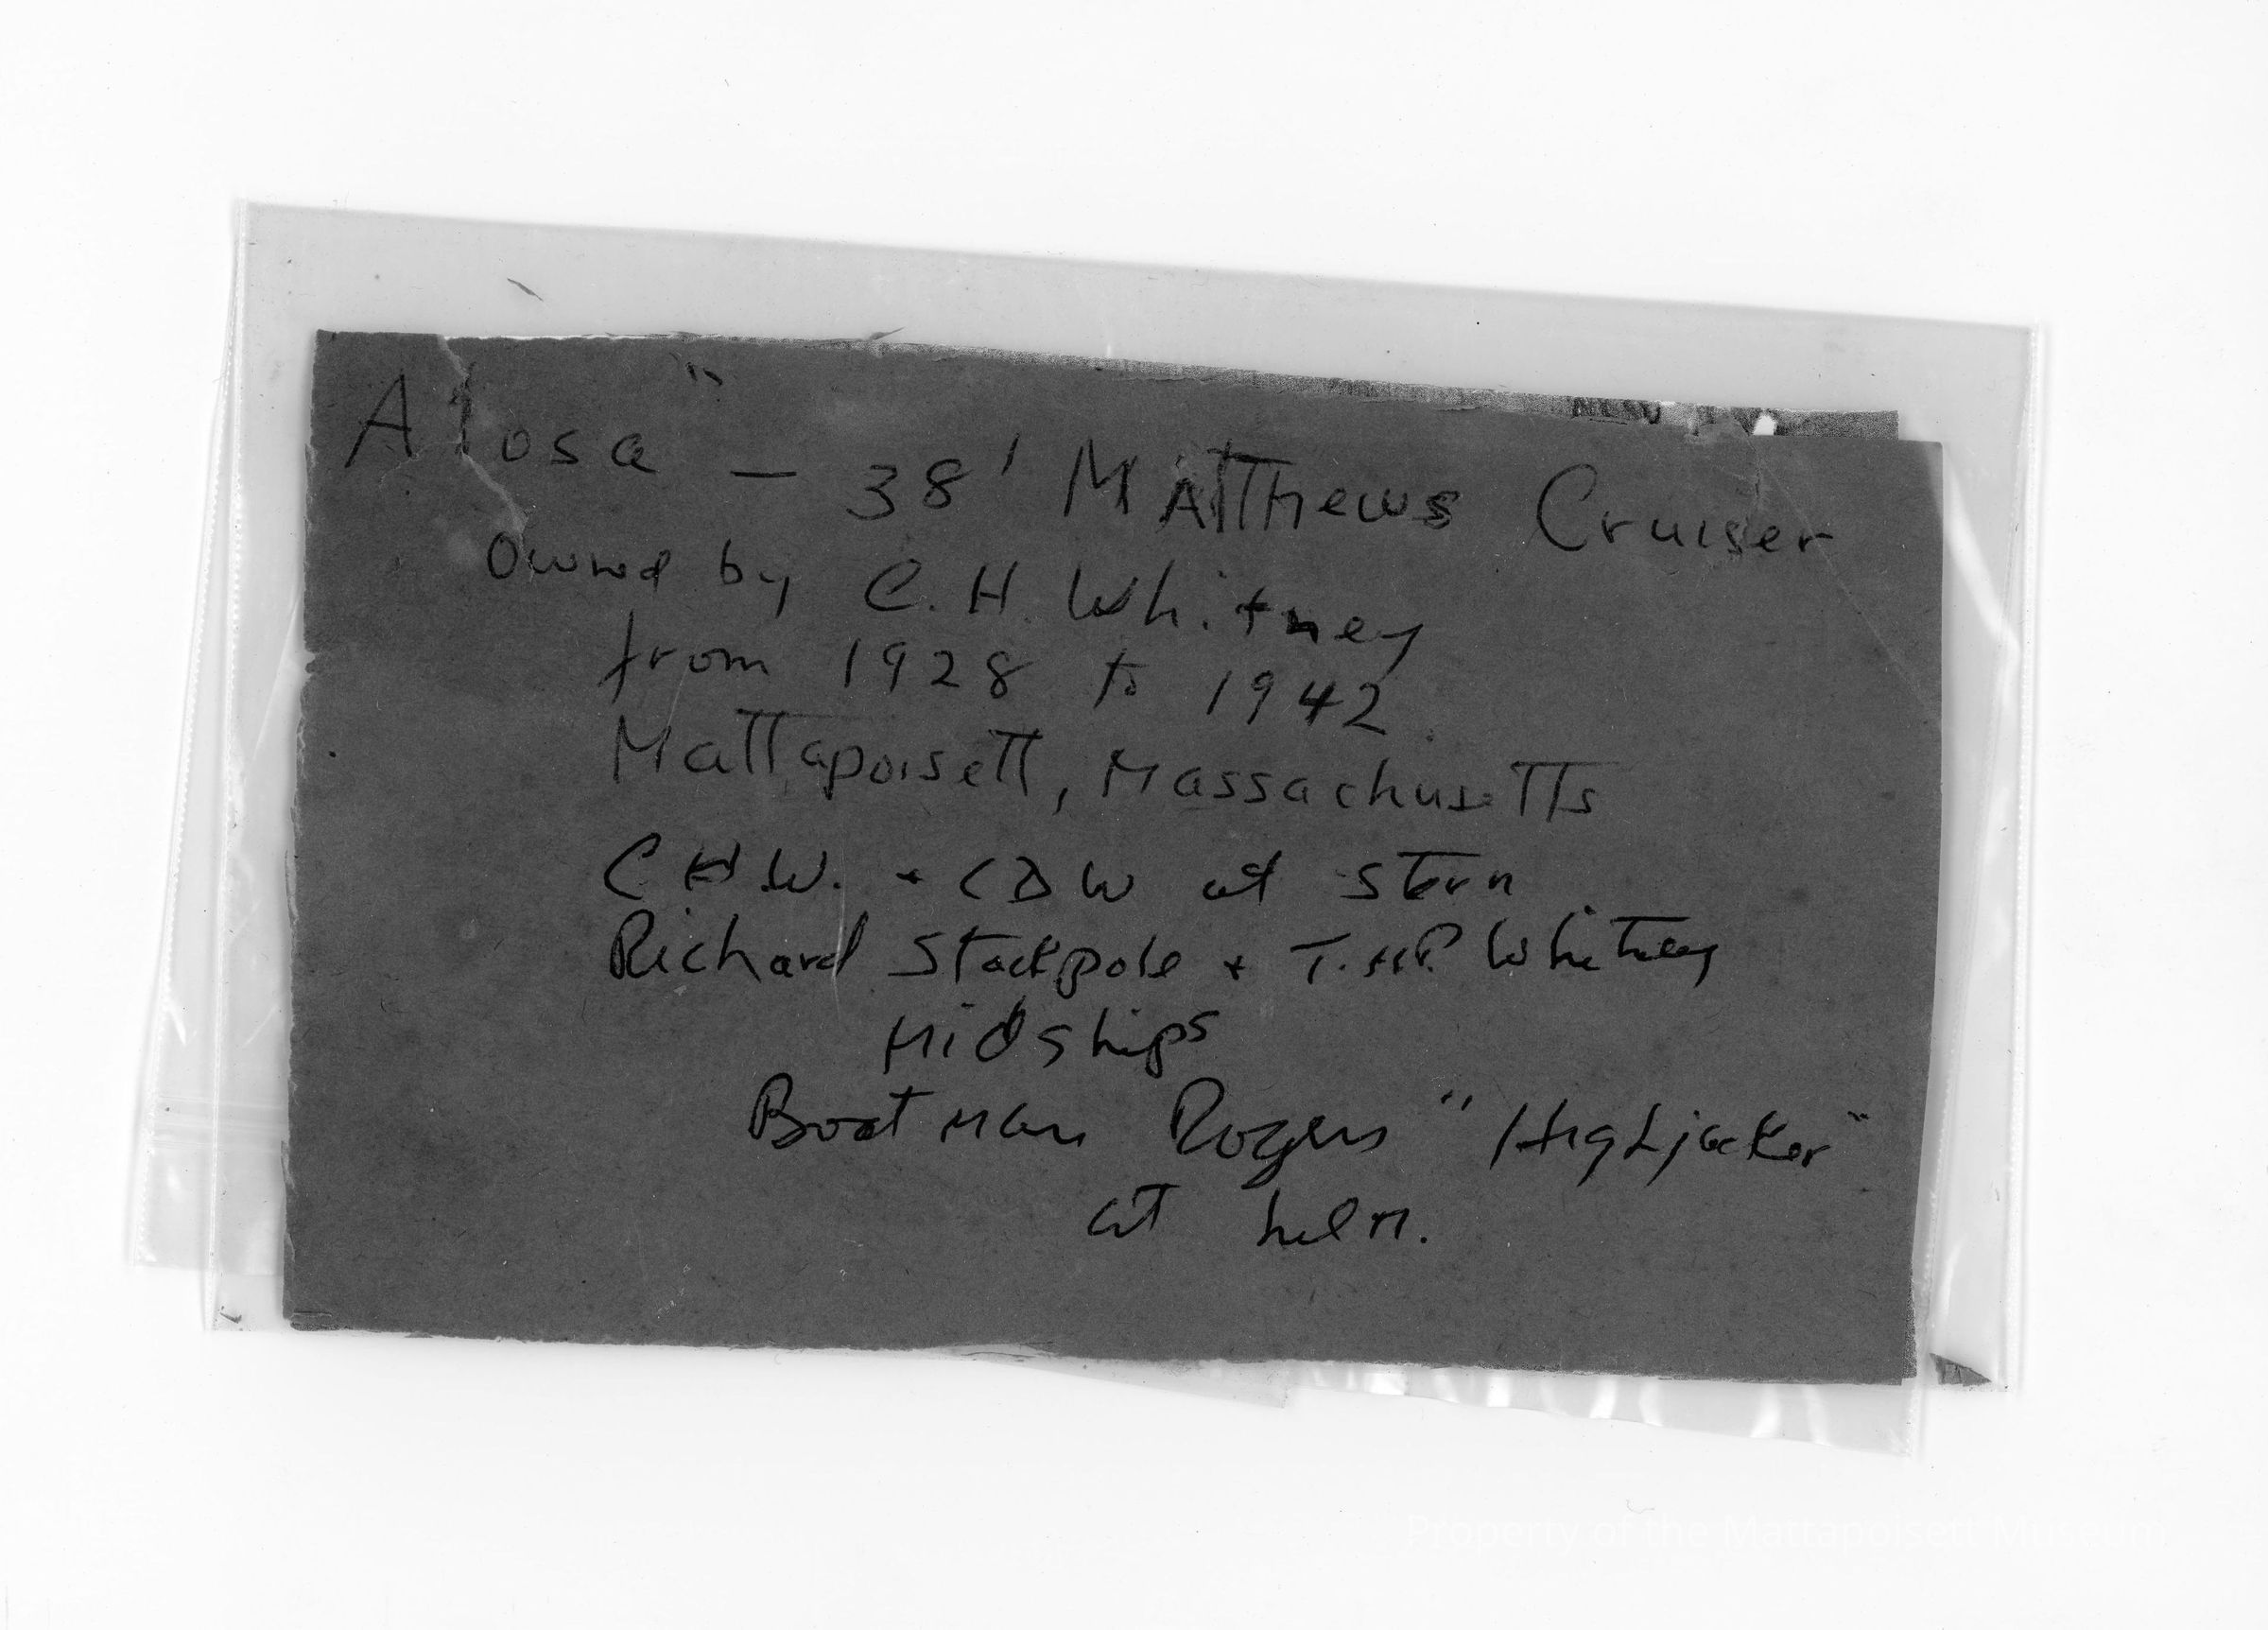 Alosa" — 38' Matthews Cruiser
owned by C.H. Whitney
from 1928 to 1942.
Mattapoisett, Massachusetts
C H.W. + CDW at stern
Richard Stackpole + T.HP. Whitney
Midships
Boatman Rogers "Highjacker"
at helm.
Property of the Mattapoisett Museum